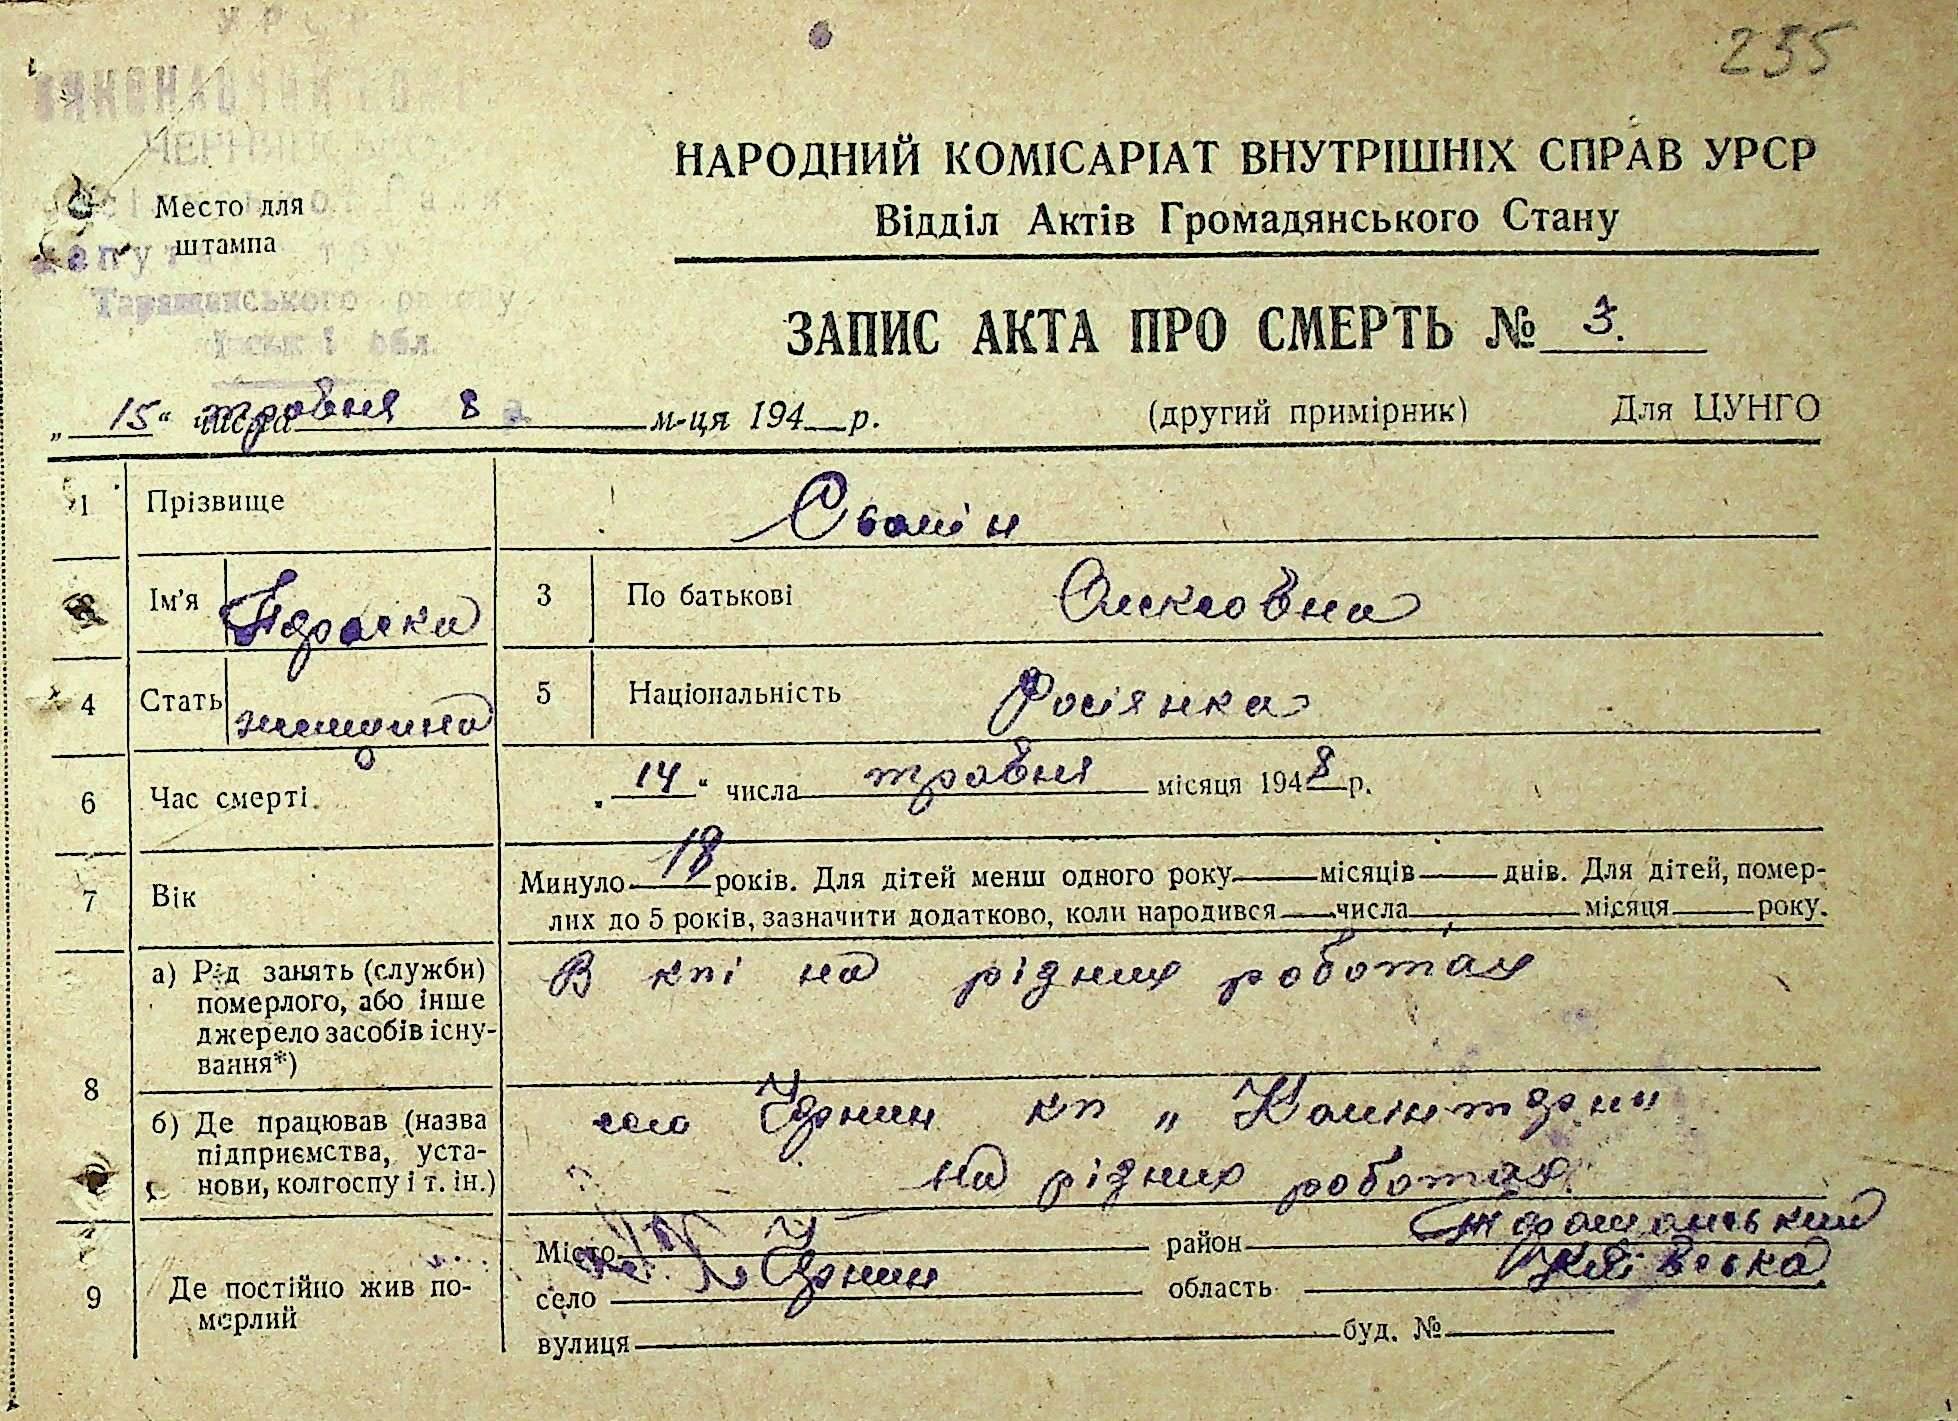 235
УРСР
ЧЕРНИНСЬКОЇ
Таращанського району
обл.
Место для
штампа
НАРОДНИЙ КОМІСАРІАТ ВНУТРІШНІХ СПРАВ УРСР
Відділ Актів Громадянського Стану
ЗАПИС АКТА ПРО СМЕРТЬ № 3.
„15“ числа травня 8 м-ця 194 р. (другий примірник) Для ЦУНГО
1 Прізвище Свомін
2 Ім'я 3 По батькові
4 Стать женщина 5 Національність Росіянка
6 Час смерті „14“ числа травня місяця 1948 р.
7 Вік Минуло 18 років. Для дітей менш одного року місяців днів. Для дітей, помер-
лих до 5 років, зазначити додатково, коли народився числа місяця року.
8 а) Рід занять (служби) померлого, або інше джерело засобів існу-вання*) В кпі на рідних роботах
б) Де працював (назва підприємства, уста-нови, колгоспу і т. ін.) село Чернин кп „Комінтерн“
на рідних роботах
9 Де постійно жив по-мерлий Місто район Таращанський
село Чернин область Київська
вулиця буд. №